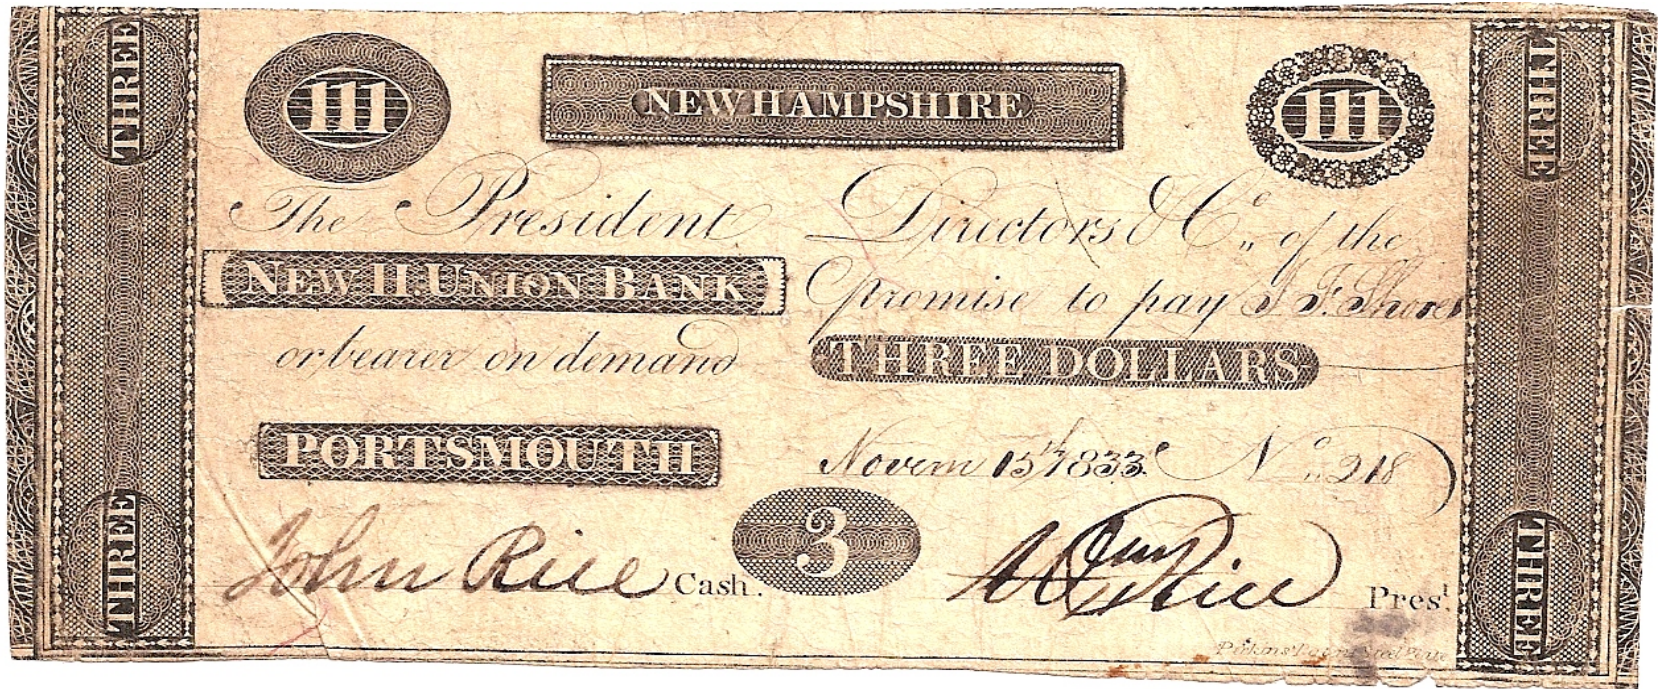 THREE
THREE
111
NEW HAMPSHIRE
111
The President Directors & Co. of the
NEW H. UNION BANK promise to pay J. F. Shores
or bearer on demand THREE DOLLARS
PORTSMOUTH Novem 15th 1833 No. 218
John Rice Cash. 3 Wm Rice Prest.
THREE
THREE